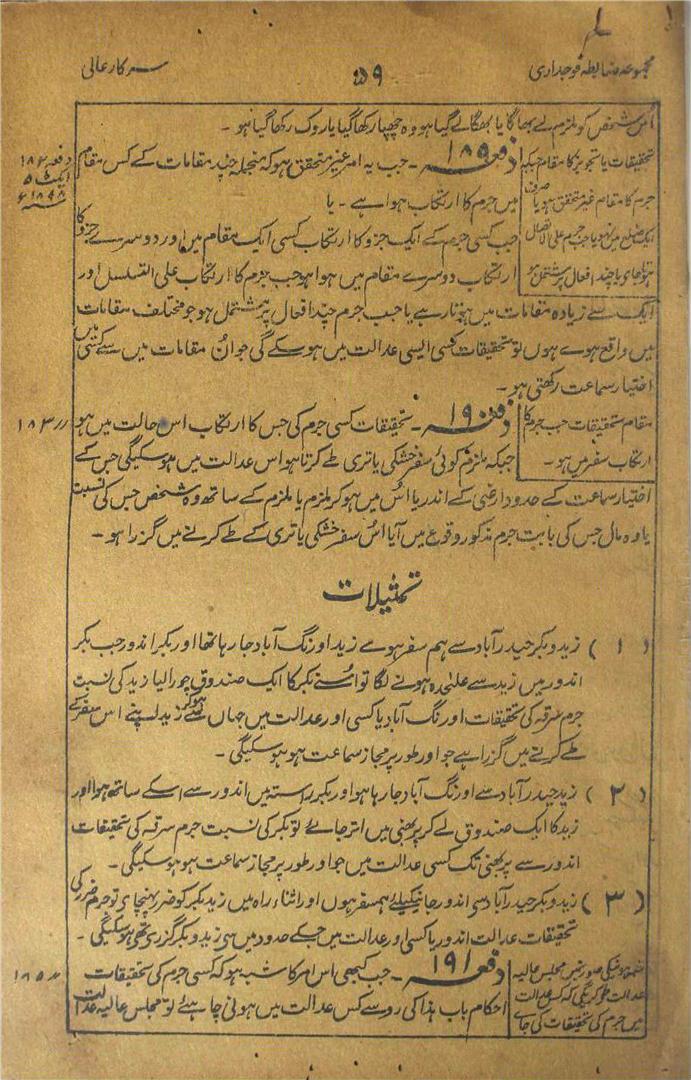 مجموعہ ضابطہ فوجداری
۵۹
سرکار عالی
اُس شخص کو ملزم لے بھاگا یا بھگا لے گیا ہو وہ چھپا رکھا گیا یا روک رکھا گیا ہو ۔
تحقیقات یا تجویز کا مقام جبکہ
جرم کا مقام غیر متحقق ہو یا صرف
ایک ضلع میں نہو یا جب جرم علی الاتصال
ہوتا جاے یا چند افعال پر مشتمل ہو
دفعہ ۱۸۹ ۔ جب یہ امر غیر متحقق ہو کہ منجملہ چند مقامات کے کس مقام
میں جرم کا ارتکاب ہوا ہے ۔ یا
جب کسی جرم کے ایک جزو کا ارتکاب کسی ایک مقام میں اور دوسرے جزو کا
ارتکاب دوسرے مقام میں ہوا ہو جب جرم کا ارتکاب علی التسلسل اور
ایک سے زیادہ مقامات میں ہوتا رہے یا جب جرم چند افعال پر مشتمل ہو جو مختلف مقامات
میں واقع ہوے ہوں تو تحقیقات کسی ایسی عدالت میں ہوسکے گی جو اُن مقامات میں سے کسی میں
اختیار سماعت رکھتی ہو ۔
دفعہ ۱۸۲
ایکٹ ۵
۱۸۹۸ء
مقام تحقیقات جب جرم کا
ارتکاب سفر میں ہو ۔
دفعہ ۱۹۰ ۔ تحقیقات کسی جرم کی جس کا ارتکاب اس حالت میں ہو
جبکہ ملزم کوئی سفر خشکی یا تری طے کرتا ہو اس عدالت میں ہو سکیگی جس کے
اختیار سماعت کے حدود ارضی کے اندر یا اُس میں ہو کر ملزم یا ملزم کے ساتھ وہ شخص جس کی نسبت
یا وہ مال جس کی بابت جرم مذکور وقوع میں آیا اُس سفر خشکی یا تری کے طے کرنے میں گزرا ہو ۔
〃 ۱۸۳
تمثیلات
(۱) زید و بکر حیدرآباد سے ہم سفر ہوے زید اورنگ آباد جا رہا تھا اور بکر اندور جب بکر
اندور میں زید سے علیٰحدہ ہونے لگا تو اُسنے بکر کا ایک صندوق چورا لیا زید کی نسبت
جرم سرقہ کی تحقیقات اورنگ آباد یا کسی اور عدالت میں جہاں سے ہوکر زید اپنے اس سفر کے
طے کرنے میں گزرا ہے جو اور طور پر مجاز سماعت ہو ہو سکیگی ۔
(۲) زید حیدرآباد سے اورنگ آباد جا رہا ہو اور بکر رستہ میں اندور سے اسکے ساتھ ہوا اور
زید کا ایک صندوق لے کر پربھنی میں اتر جاے تو بکر کی نسبت جرم سرقہ کی تحقیقات
اندور سے پربھنی تک کسی عدالت میں جو اور طور پر مجاز سماعت ہو ہو سکیگی ۔
(۳) زید و بکر حیدرآباد سی اندور جانیکیلئے ہمسفر ہوں اور اثناء راہ میں زید بکر کو ضرر پہنچاے تو جرم ضرر کی
تحقیقات عدالت اندور یا کسی اور عدالت میں جسکے حدود میں سی زید و بکر گزری تھی ہو سکیگی ۔
صورتمیں مجلس عالیہ
عدالت طے کریگی کہ کس عدالت
میں جرم کی تحقیقات کی جاے
دفعہ ۱۹۱ ۔ جب کبھی اس امر کا شبہ ہو کہ کسی جرم کی تحقیقات
احکام باب ہذا کی رو سے کس عدالت میں ہونی چاہئے تو مجلس عالیہ عدالت
〃 ۱۸۵